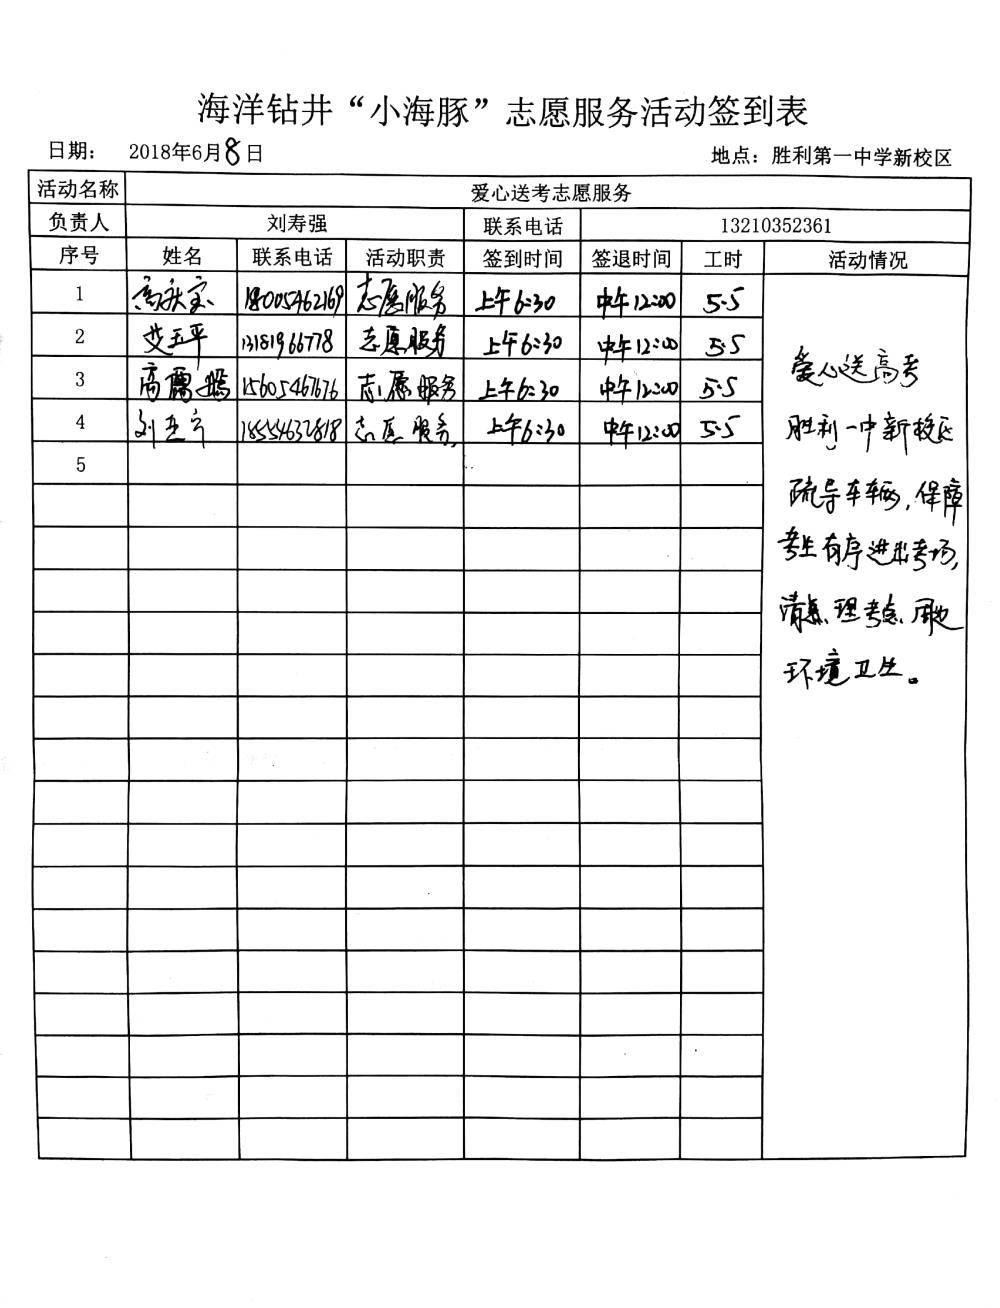 海洋钻井“小海豚”志愿服务活动签到表
日期： 2018年6月8日 地点：胜利第一中学新校区
活动名称 爱心送考志愿服务
负责人 刘寿强 联系电话 13210352361
序号 姓名 联系电话 活动职责 签到时间 签退时间 工时 活动情况
1 18005462169 志愿服务 上午6:30 中午12:00 5.5
2 艾玉平 13181966778 志愿服务 上午6:30 中午12:00 5.5
3 15605467676 志愿服务 上午6:30 中午12:00 5.5
4 18554632818 志愿服务 上午6:30 中午12:00 5.5
5
爱心送高考
胜利一中新校区
疏导车辆,保障
考生有序进出考场,
清理考点周边
环境卫生。